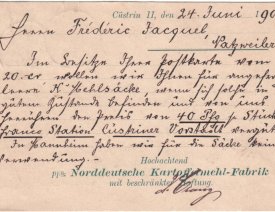 Cüstrin II, den 24. Juni 190
Herrn Frédéric Jacquel, Natzweiler
Im Besitze Ihrer Postkarte vom
20. er wollen wir Ihnen für
leere K Mehlsäcke, wenn sich solche in
gutem Zustande befinden und von uns
den Preis von 40 Pfg p Stück
franco Station Cüstriner Vorstadt
In Mannheim haben wir für die Säcke keine
Verwendung.
Hochachtend
ppa. Norddeutsche Kartoffelmehl-Fabrik
mit beschränkter Haftung.